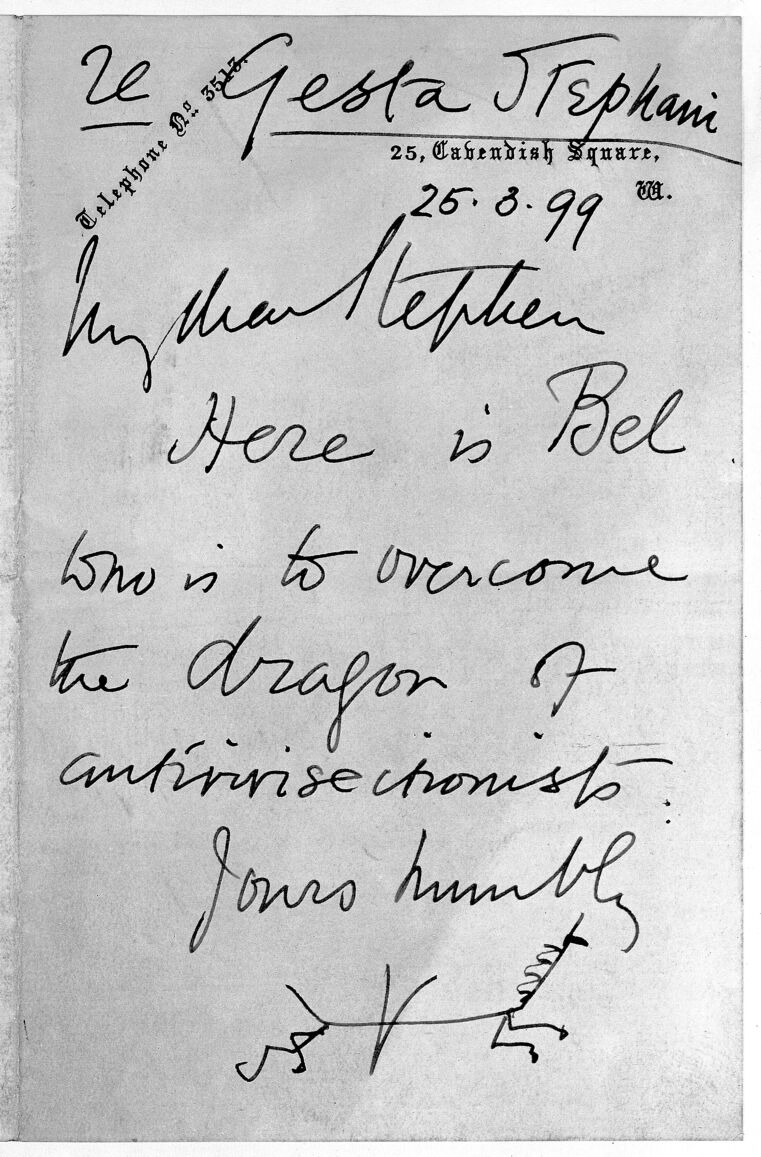 re Gesta Stephani
Telephone No. 3513.
25, Cavendish Square,
W.
25. 3. 99
My dear Stephen
Here is Bel
who is to overcome
the dragon of
antivivisectionists.
Yours humbly